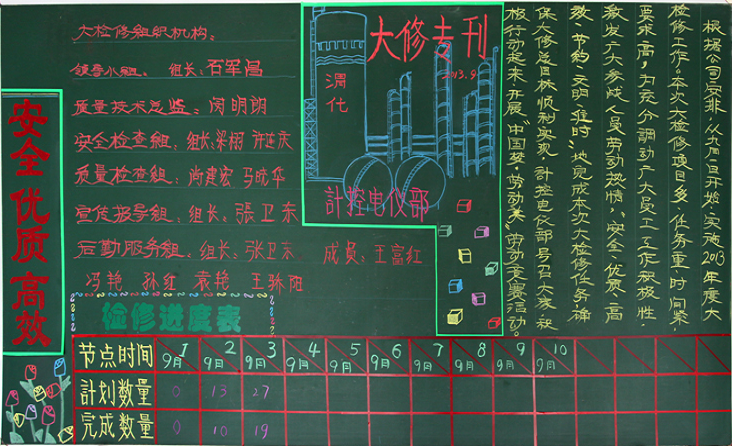 安全优质高效
大检修组织机构:
领导小组: 组长:石军昌
质量技术总监:闵明朗
安全检查组:组长:梁栩 许廷庆
质量检查组:尚建宏 马晓华
宣传报导组:组长:張卫东
后勤服务组:组长:张卫东 成员:王富红
冯艳 孙红 袁艳 王脉阳
大修专刊
2013.9
淍化
計控电仪部
根据公司安排,从九月一日开始,实施2013年度大
检修工作。本次大检修项目多,任务重,时间紧,
要求高,为充分调动广大员工工作积极性,
激发广大参战人员劳动热情,“安全、优质、高
效、节约、文明、准时”地完成本次大检修任务,确
保大修总目标顺利实现,計控电仪部号召大家积
极行动起来,开展“中国梦·劳动美”劳动竞赛活动。
检修进度表
节点时间 1/9月 2/9月 3/9月 4/9月 5/9月 6/9月 7/9月 8/9月 9/9月 10/9月
計划数量 0 13 27
完成数量 0 10 19